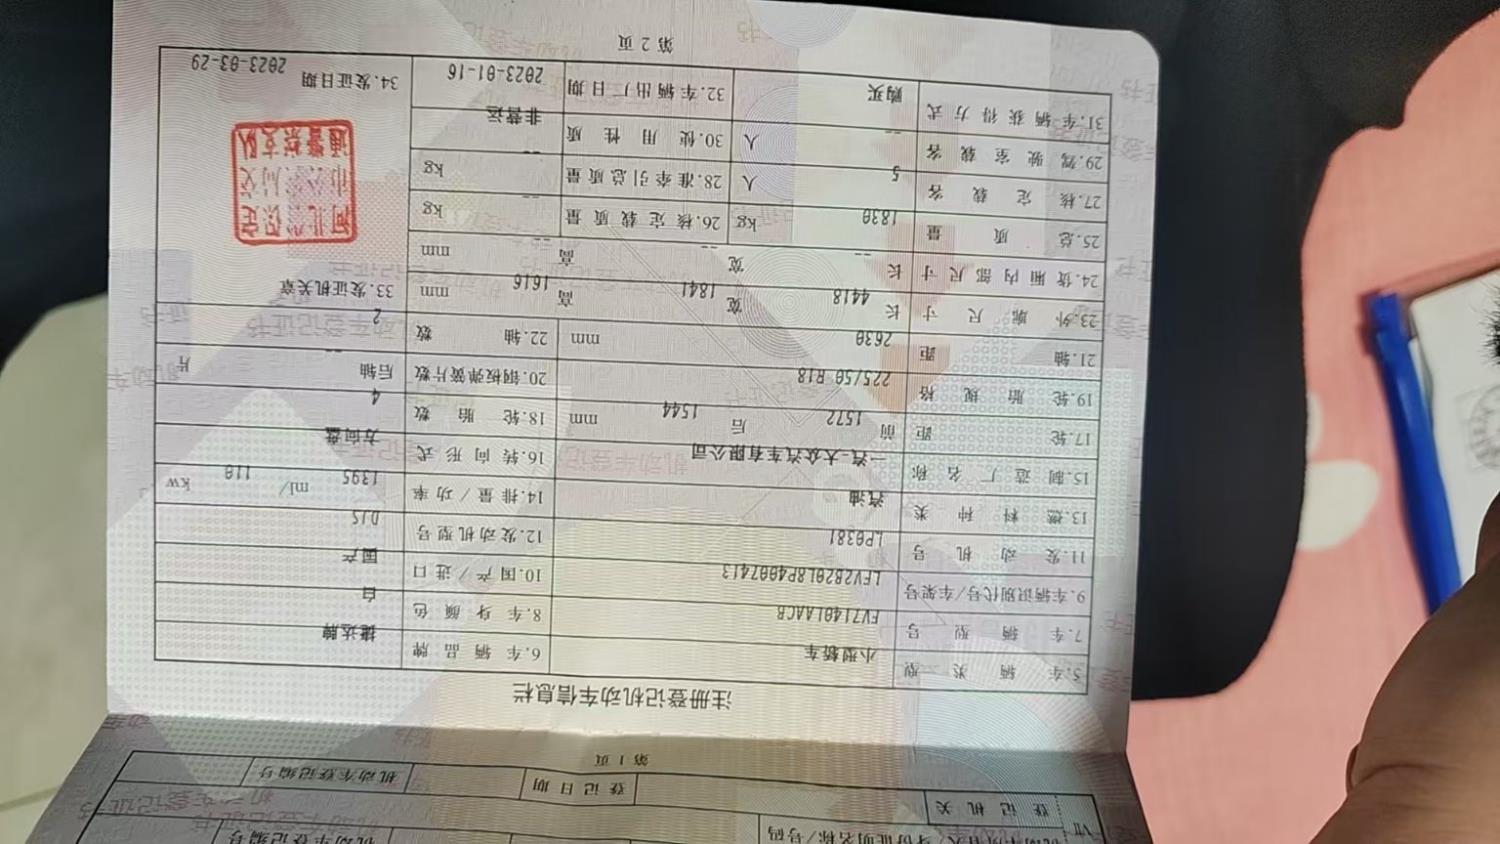 机动车所有人/身份证明名称/号码 机动车登记编号
登记机关 登记日期 机动车登记编号
第1页
注册登记机动车信息栏
5.车辆类型 小型轿车 6.车辆品牌 捷达牌
7.车辆型号 FV7140LAACB 8.车身颜色 白
9.车辆识别代号/车架号 LFV2B20L8P4007413 10.国产/进口 国产
11.发动机号 LP0381 12.发动机型号 DJS
13.燃料种类 汽油 14.排量/功率 1395 ml/ 110 kw
15.制造厂名称 一汽-大众汽车有限公司 16.转向形式 方向盘
17.轮距 前 1572 后 1544 mm 18.轮胎数 4
19.轮胎规格 225/50 R18 20.钢板弹簧片数 后轴 -- 片
21.轴距 2630 mm 22.轴数 2
23.外廓尺寸 长 4418 宽 1841 高 1616 mm 33.发证机关章
24.货厢内部尺寸 长 -- 宽 -- 高 -- mm
25.总质量 1830 kg 26.核定载质量 -- kg
27.核定载客 5 人 28.准牵引总质量 -- kg
29.驾驶室载客 -- 人 30.使用性质 非营运
31.车辆获得方式 购买 32.车辆出厂日期 2023-01-16
河北省保定
市公安局交
通警察支队
34.发证日期 2023-03-29
第2页